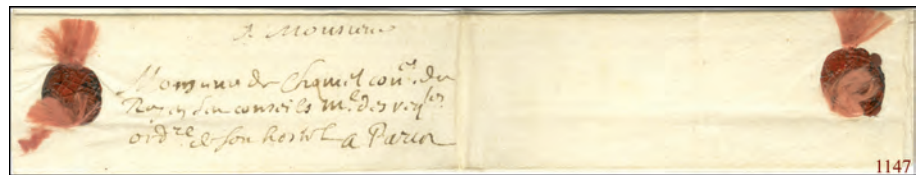 A Monsieur
Monsieur de Creil con.er du
Roy en ses conseils m.e des req.tes
ord.re de son hostel a Paris
1147